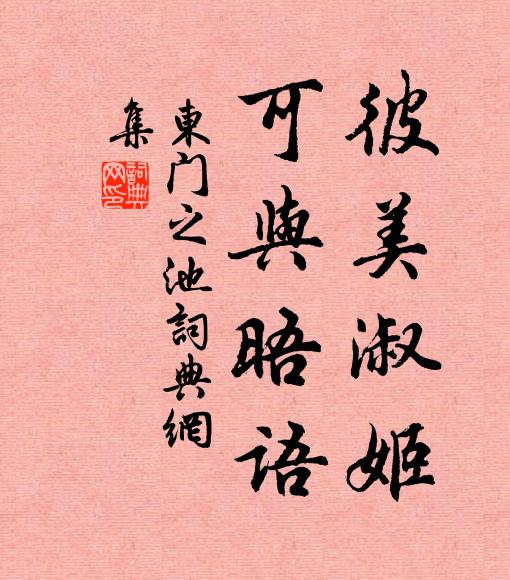 彼美淑姬
可與晤语
東门之池詞典網
集
詞典
网印